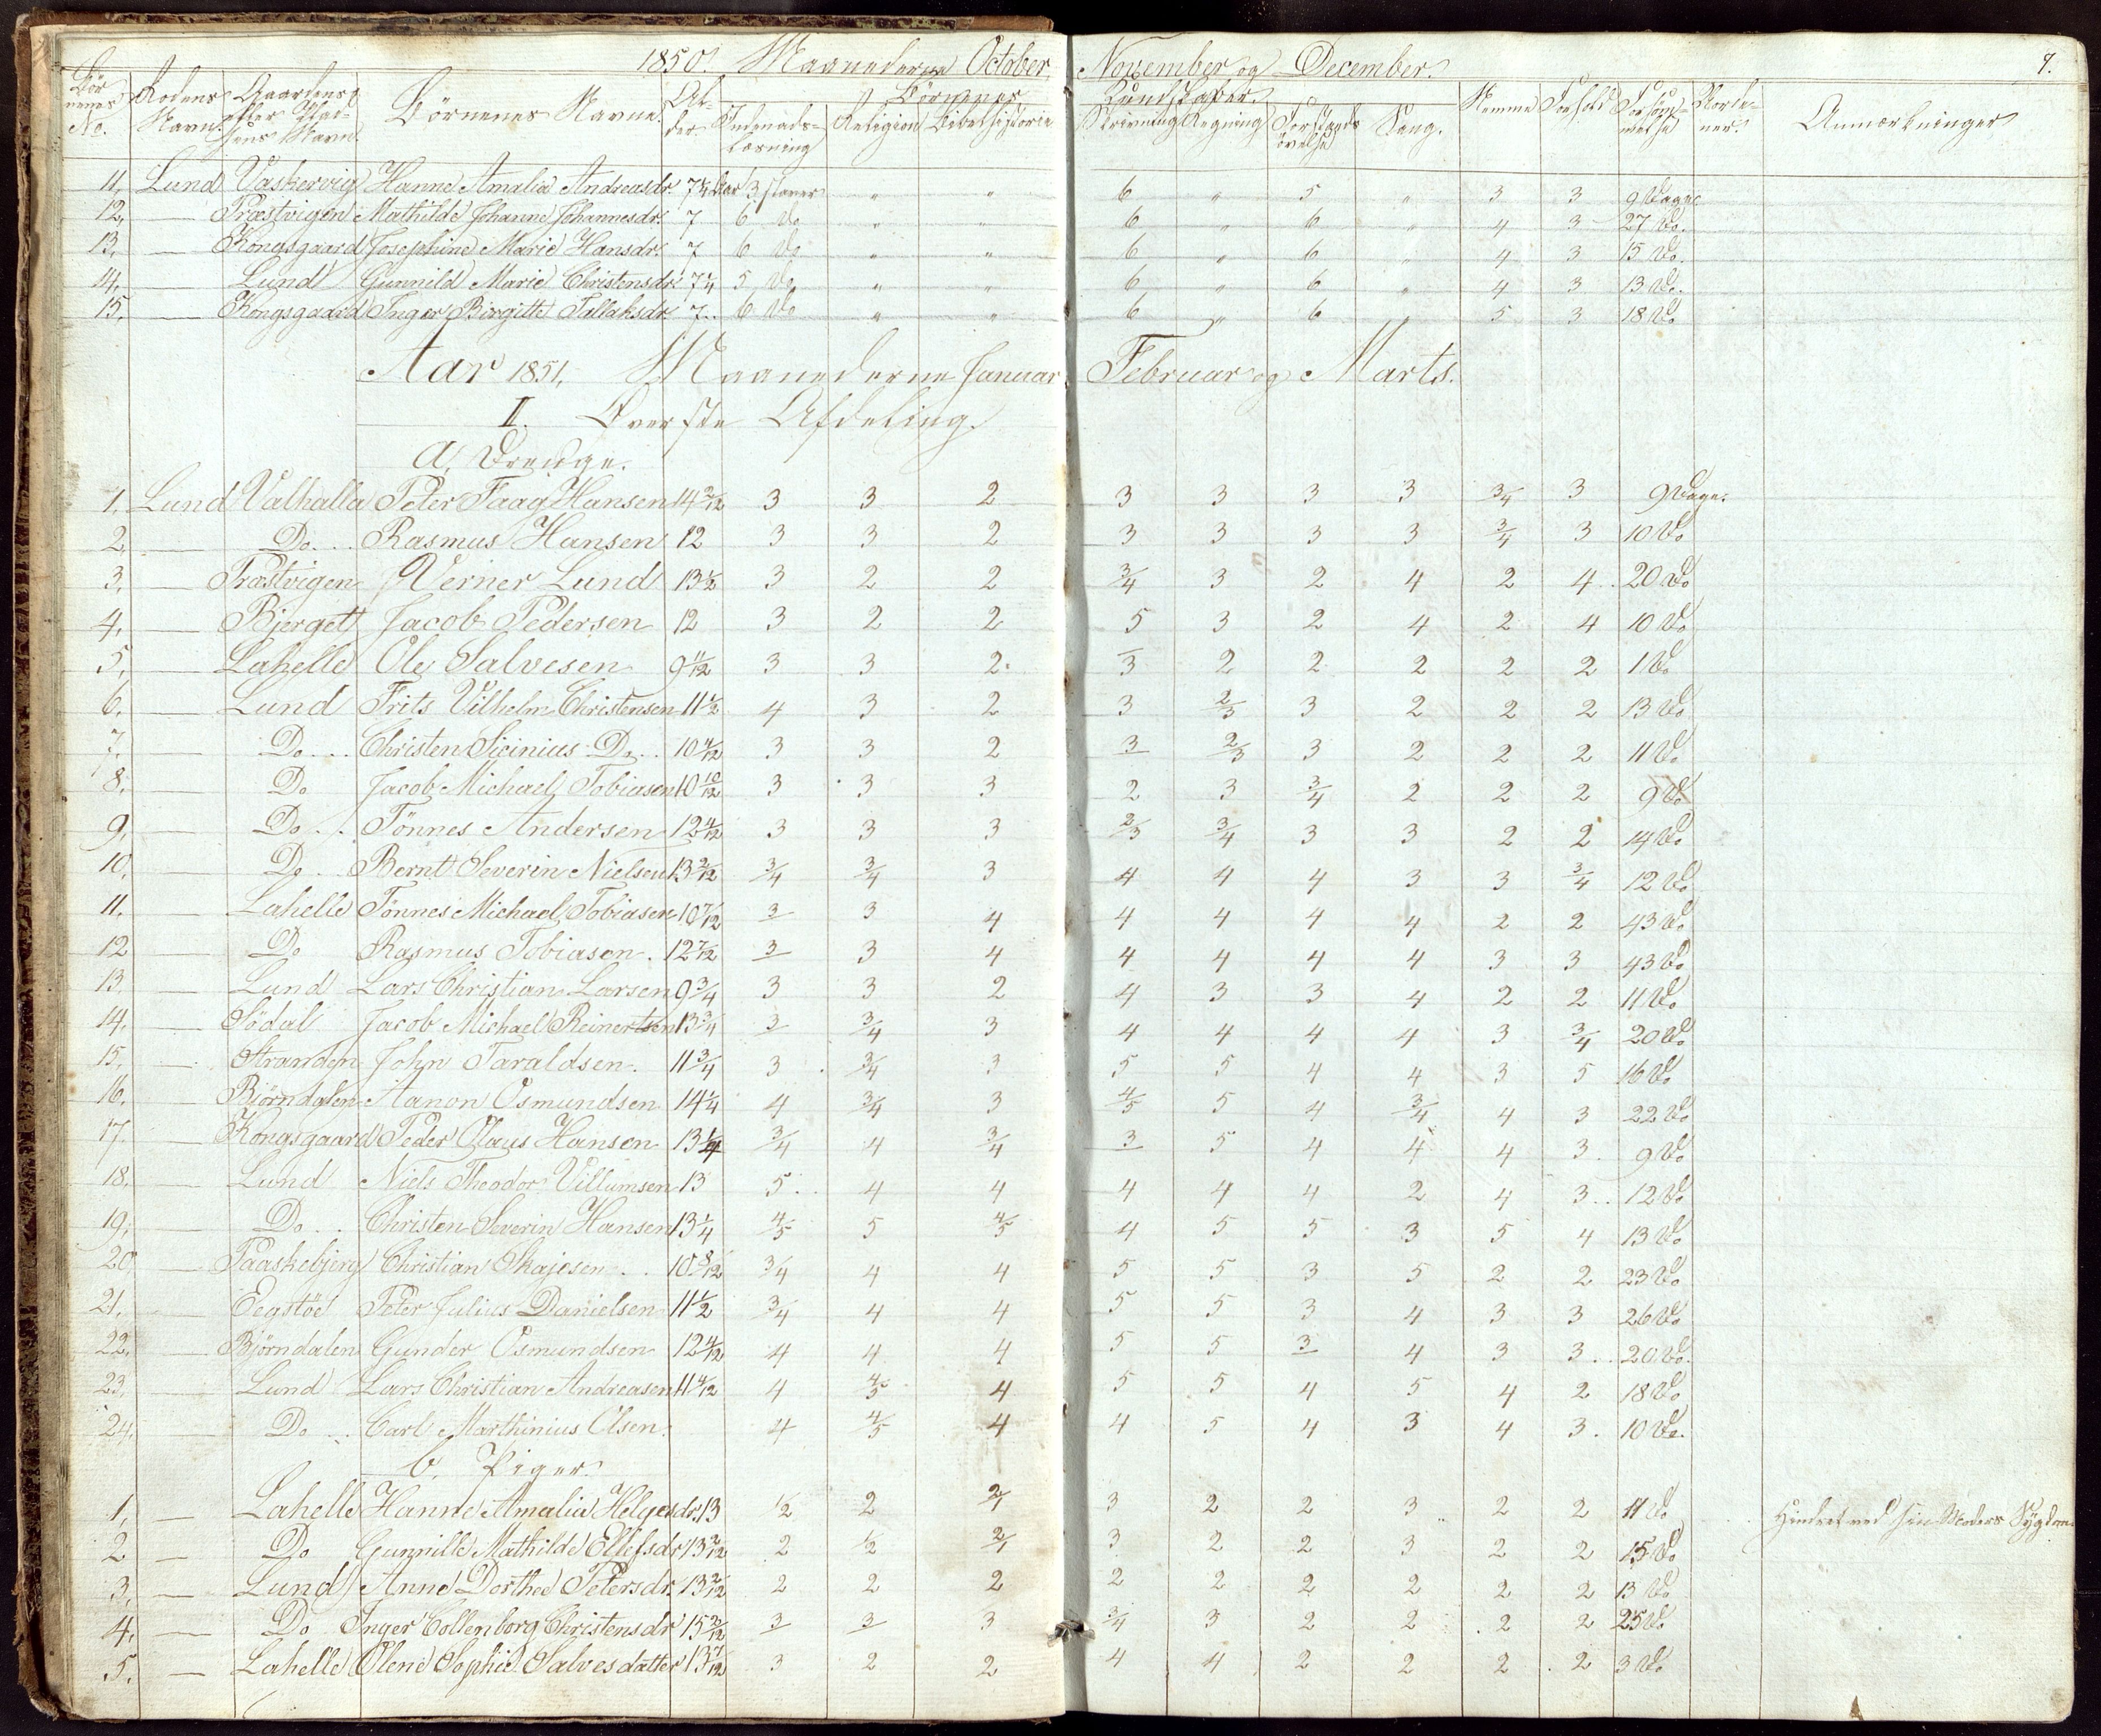 1850. Maanederne October, November og December. 7.
Börnenes No. Rodens Navn. Gaardens eller Pladsens Navn. Börnenes Navne. Alder Indenads-Læsning Religion Bibelhistorie Skrivning Regning Forstands övelse Sang. Nemme Forhold Forsömmelse Anmærkninger
Börnenes Kundskaber.
11. Lund Vaskervig Hanne Amalia Andreasdr. 7¼ Aar 3 staver „ „ 6 „ 5 „ 3 3 9 Dage
12. — Præstvigen Mathilde Johanne Johannesdr. 7 6 Do „ „ 6 „ 6 „ 4 3 27 Do.
13. — Kongsgaard Josephine Marie Hansdr. 7 6 Do „ „ 6 „ 6 „ 4 3 15 Do.
14. — Lund Gunnild Marie Christensdr. 7¼ 5 Do „ „ 6 „ 6 „ 4 3 13 Do.
15. — Kongsgaard Inger Birgitte Tallaksdr. 7. 6 Do „ „ 6 „ 6 „ 5 3 18 Do
Aar 1851. Maanederne Januar Februar og Marts.
II. Överste Afdeling.
a, Drenge.
1. Lund Valhalla Peter Faag Hansen 14 2/12 3 3 2 3 3 3 3 3/4 3 9 Dage.
2. — Do. Rasmus Hansen 12 3 3 2 3 3 3 3 3/4 3 10 Do
3. — Præstvigen Verner Lund 13½ 3 2 2 3/4 3 2 4 2 4 20 Do
4. — Bjerget Jacob Pedersen 12 3 2 2 5 3 2 4 2 4 10 Do
5. — Lahelle Ole Salvesen 9 11/12 3 3 2 3 2 2 2 2 2 1 Do
6. — Lund Frits Vilhelm Christensen 11½ 4 3 2 3 2/3 3 2 2 2 13 Do
7. — Do Christen Sicinius Do 10 4/12 3 3 2 3 2/3 3 2 2 2 11 Do
8. — Do Jacob Michael Tobiasen 10 10/12 3 3 3 2 3 3/4 2 2 2 9 Do
9. — Do Tönnes Andersen 12 4/12 3 3 3 2/3 3/4 3 3 2 2 14 Do
10. — Do Bernt Severin Nielsen 13 2/12 3/4 3/4 3 4 4 4 3 3 3/4 12 Do
11. — Lahelle Tönnes Michael Tobiasen 10 7/12 3 3 4 4 4 4 4 2 2 43 Do
12 — Do Rasmus Tobiasen. 12 7/12 3 3 4 4 4 4 4 3 3 43 Do
13. — Lund Lars Christian Larsen 9¾ 3 3 2 4 3 3 4 2 2 11 Do
14. — Södal Jacob Michael Reinertsen 13¾ 3 3/4 3 4 4 4 4 3 3/4 20 Do
15. — Stranden John Taraldsen. 11¾ 3 3/4 3 5 5 4 4 3 5 16 Do
16. — Björndalen Aanon Osmundsen 14¼ 4 3/4 3 4/5 5 4 3/4 4 3 22 Do
17. — Kongsgaard Peder Olaus Hansen 13¼ 3/4 4 3/4 3 5 4 4 4 3. 9 Do
18. — Lund Niels Theodor Villumsen 13 5 4 4 4 4 4 2 4 3 12 Do
19. — Do Christen Severin Hansen 13¼ 4/5 5 4/5 4 5 5 3 5 4 13 Do
20 — Paaskebjerg Christian Skajesen 10 8/12 3/4 4 4 5 5 3 5 2 2 23 Do
21. — Eegstöe Peter Julius Danielsen 11½ 3/4 4 4 5 5 3 4 3 3 26 Do
22. — Björndalen Gunder Osmundsen 12 4/12 4 4 4 5 5 3 4 3 3 20 Do.
23. — Lund Lars Christian Andreasen 11 4/12 4 4/5 4 5 5 4 5 4 2 18 Do
24. — Do Carl Marthinius Olsen. 4 4/5 4 4 5 4 3 4 3. 10 Do.
b. Piger.
1. — Lahelle Hanne Amalia Helgesdr. 13 1/2 2 2/1 3 2 2 3 2 2 11 Do Hindret ved sin Moders Sygdom
2 — Do Gunnille Mathilde Ellefsdr 13 2/12 2 1/2 2/1 3 2 2 3 2 2 15 Do
3. — Lund Anne Dorthea Petersdr. 13 2/12 2 2 2 2 2 2 2 2 2 13 Do
4. — Do Inger Collenborg Christensdr 15 2/12 3 3 3 3/4 3 2 2 2 2 25 Do
5. — Lahelle Olene Sophie Salvesdatter 13 7/12 3 2 2 4 4 2 2 2 2 3 Do